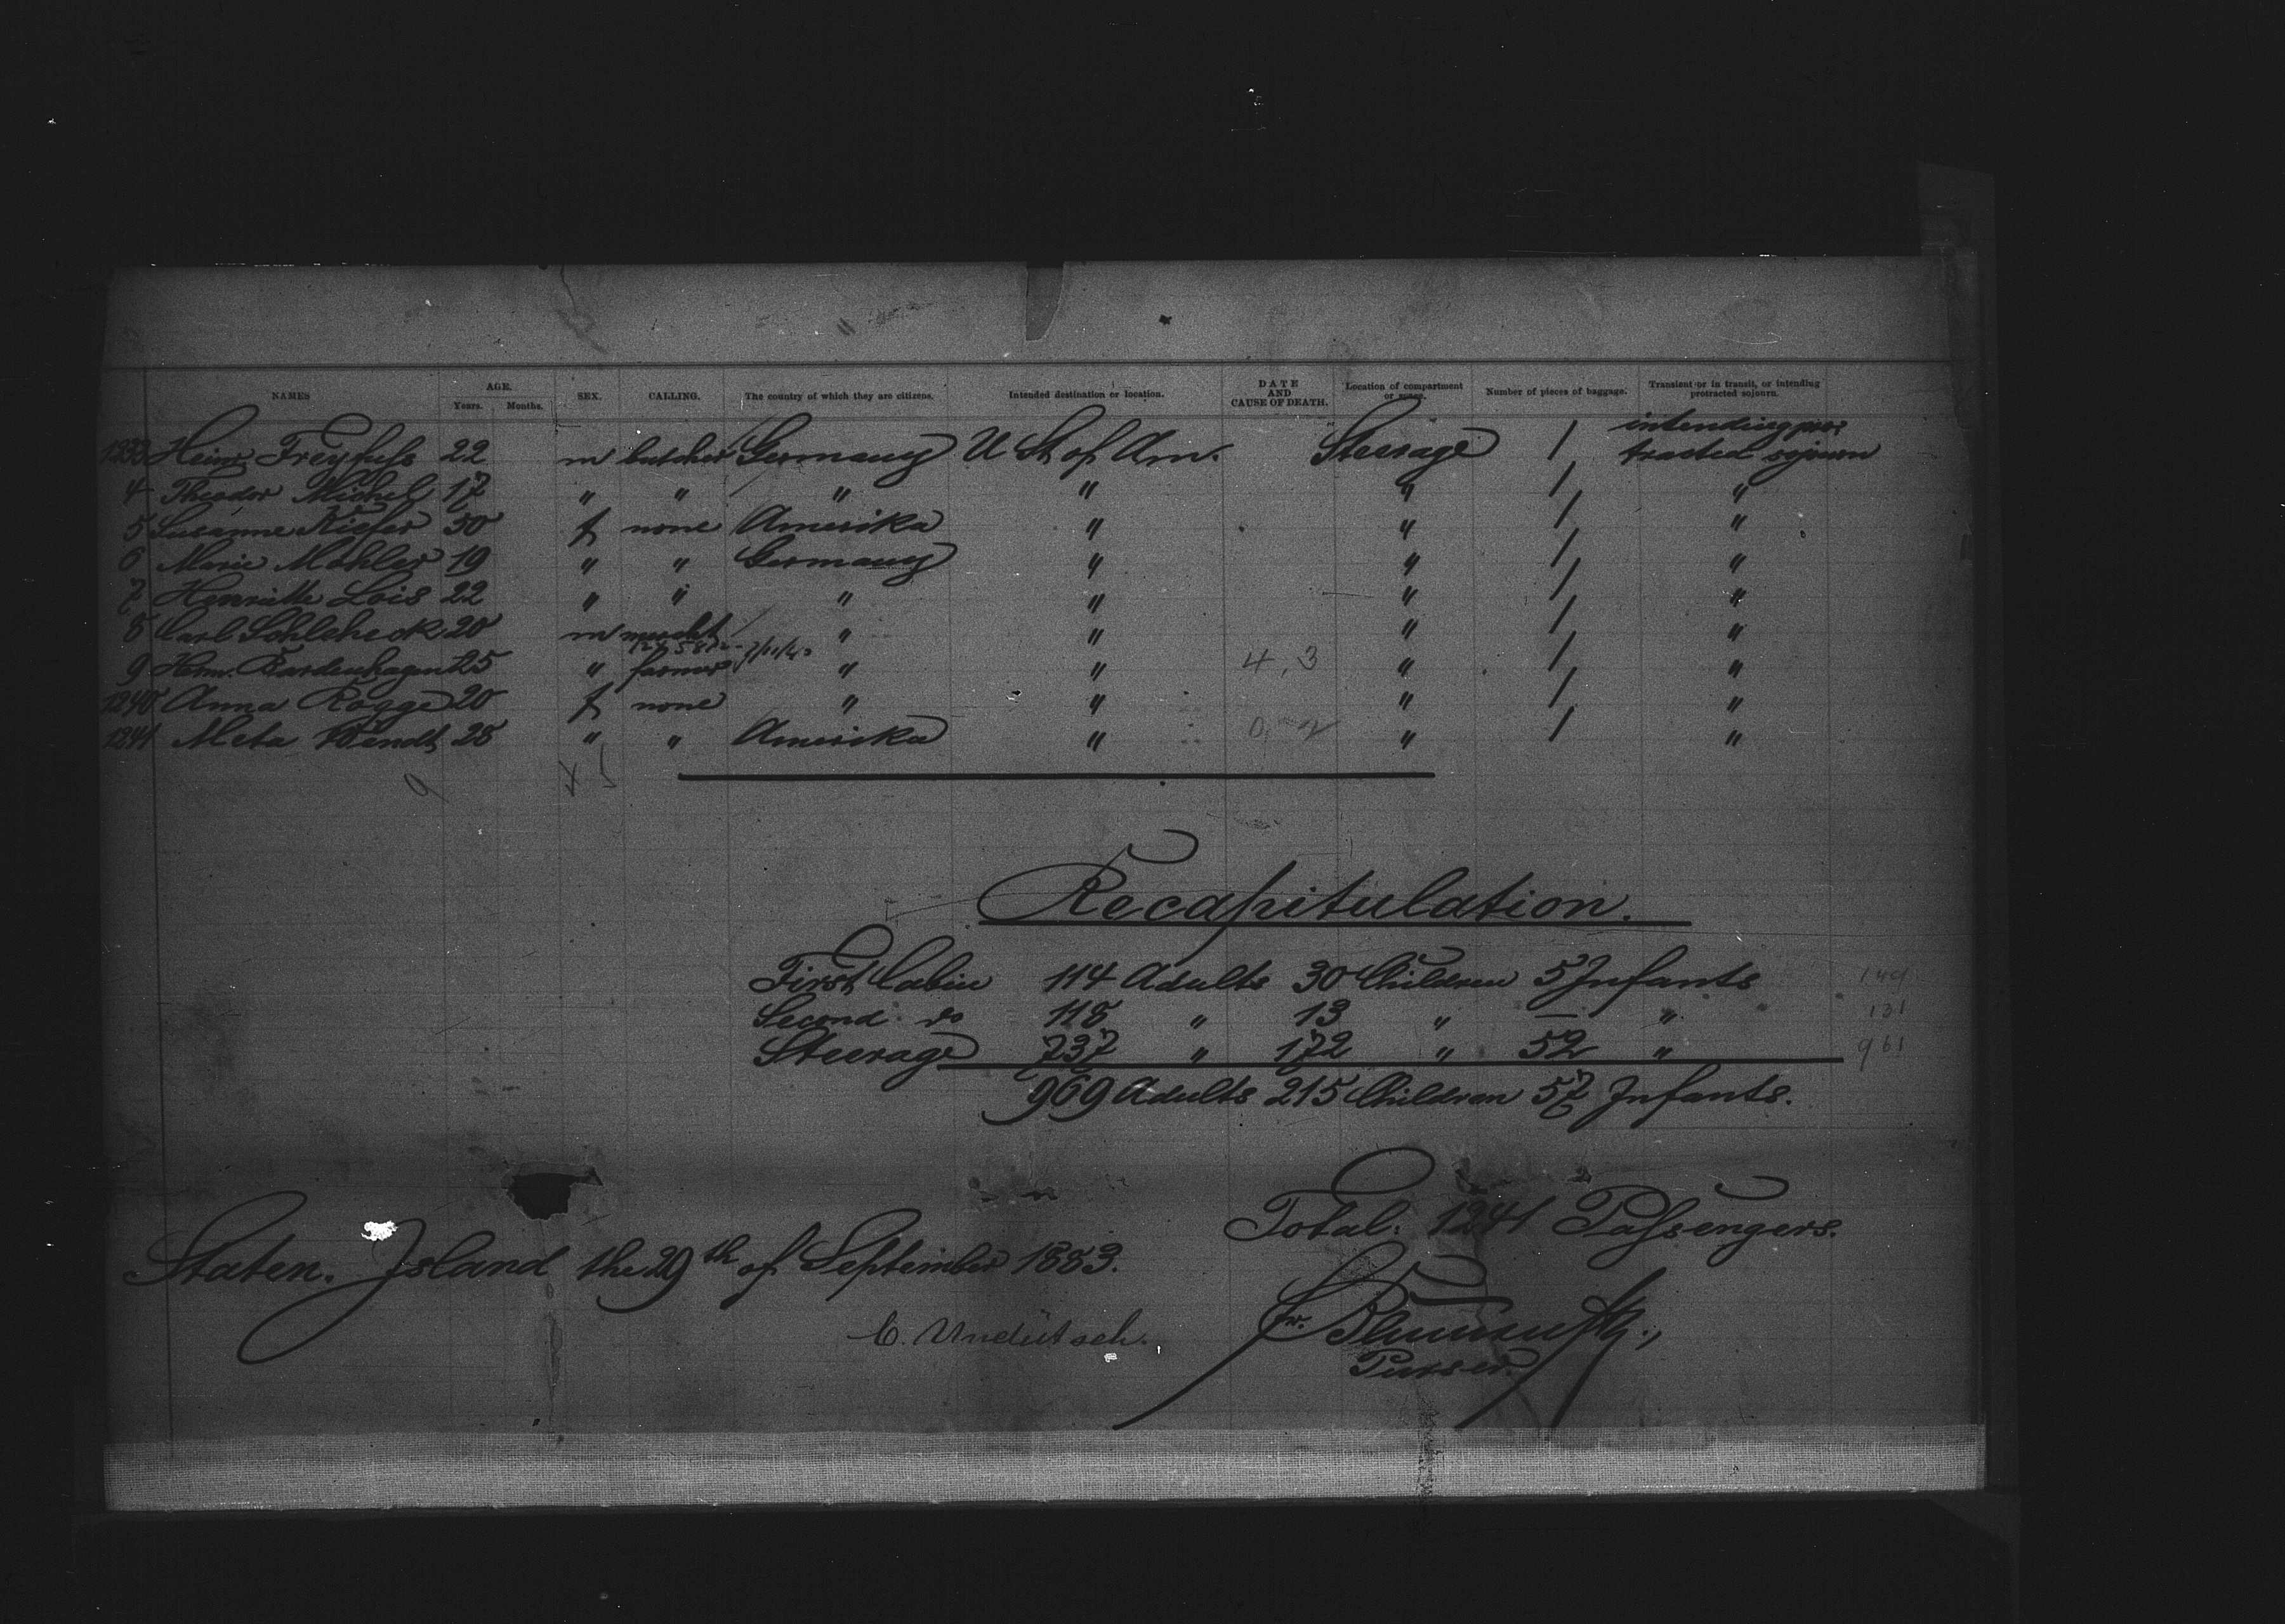 NAMES AGE. SEX. CALLING. The country of which they are citizens. Intended destination or location. DATE AND CAUSE OF DEATH. Location of compartment or space. Number of pieces of baggage. Transient or in transit, or intending protracted sojourn.
Years. Months.
1233 Heinr. Freyfuss 22 m butcher Germany U St of Am. Steerage 1 intending protracted sojourn
4 Theodor Michel 17 " " " " " 1 "
5 Susanne Kiefer 50 f none Amerika " " 1 "
6 Marie Mohler 19 " " Germany " " 1 "
7 Henriette Lois 22 " " " " " 1 "
8 Carl Schleheck 20 m " " " 1 "
9 Herm. Bardenhagen 25 " farmer " " 4, 3 " 1 "
1240 Anna Rogge 20 f none " " " 1 "
1241 Meta Wendt 25 " " Amerika " " 1 "
9 4 5
Recapitulation.
First Cabin 114 Adults 30 Children 5 Infants 149
Second do 118 " 13 " — " 131
Steerage 737 " 172 " 52 " 961
969 Adults 215 Children 57 Infants.
Total: 1241 Passengers.
Staten. Island the 29th of September 1883.
C. Undütsch.
Purser.